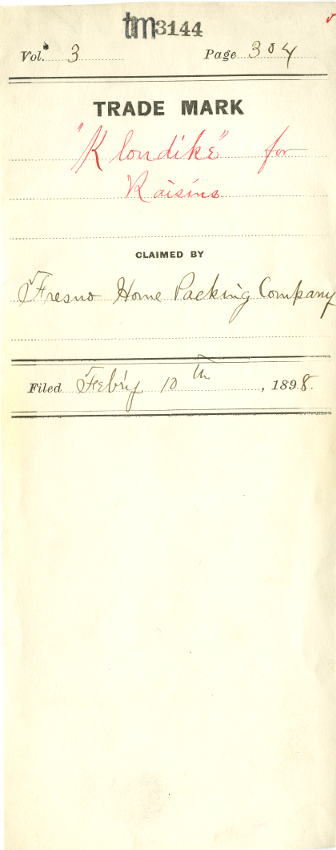 tm3144
Vol. 3 Page 304
TRADE MARK
"Klondike" for
Raisins
CLAIMED BY
Fresno Home Packing Company
Filed Feb'y 10th, 1898.